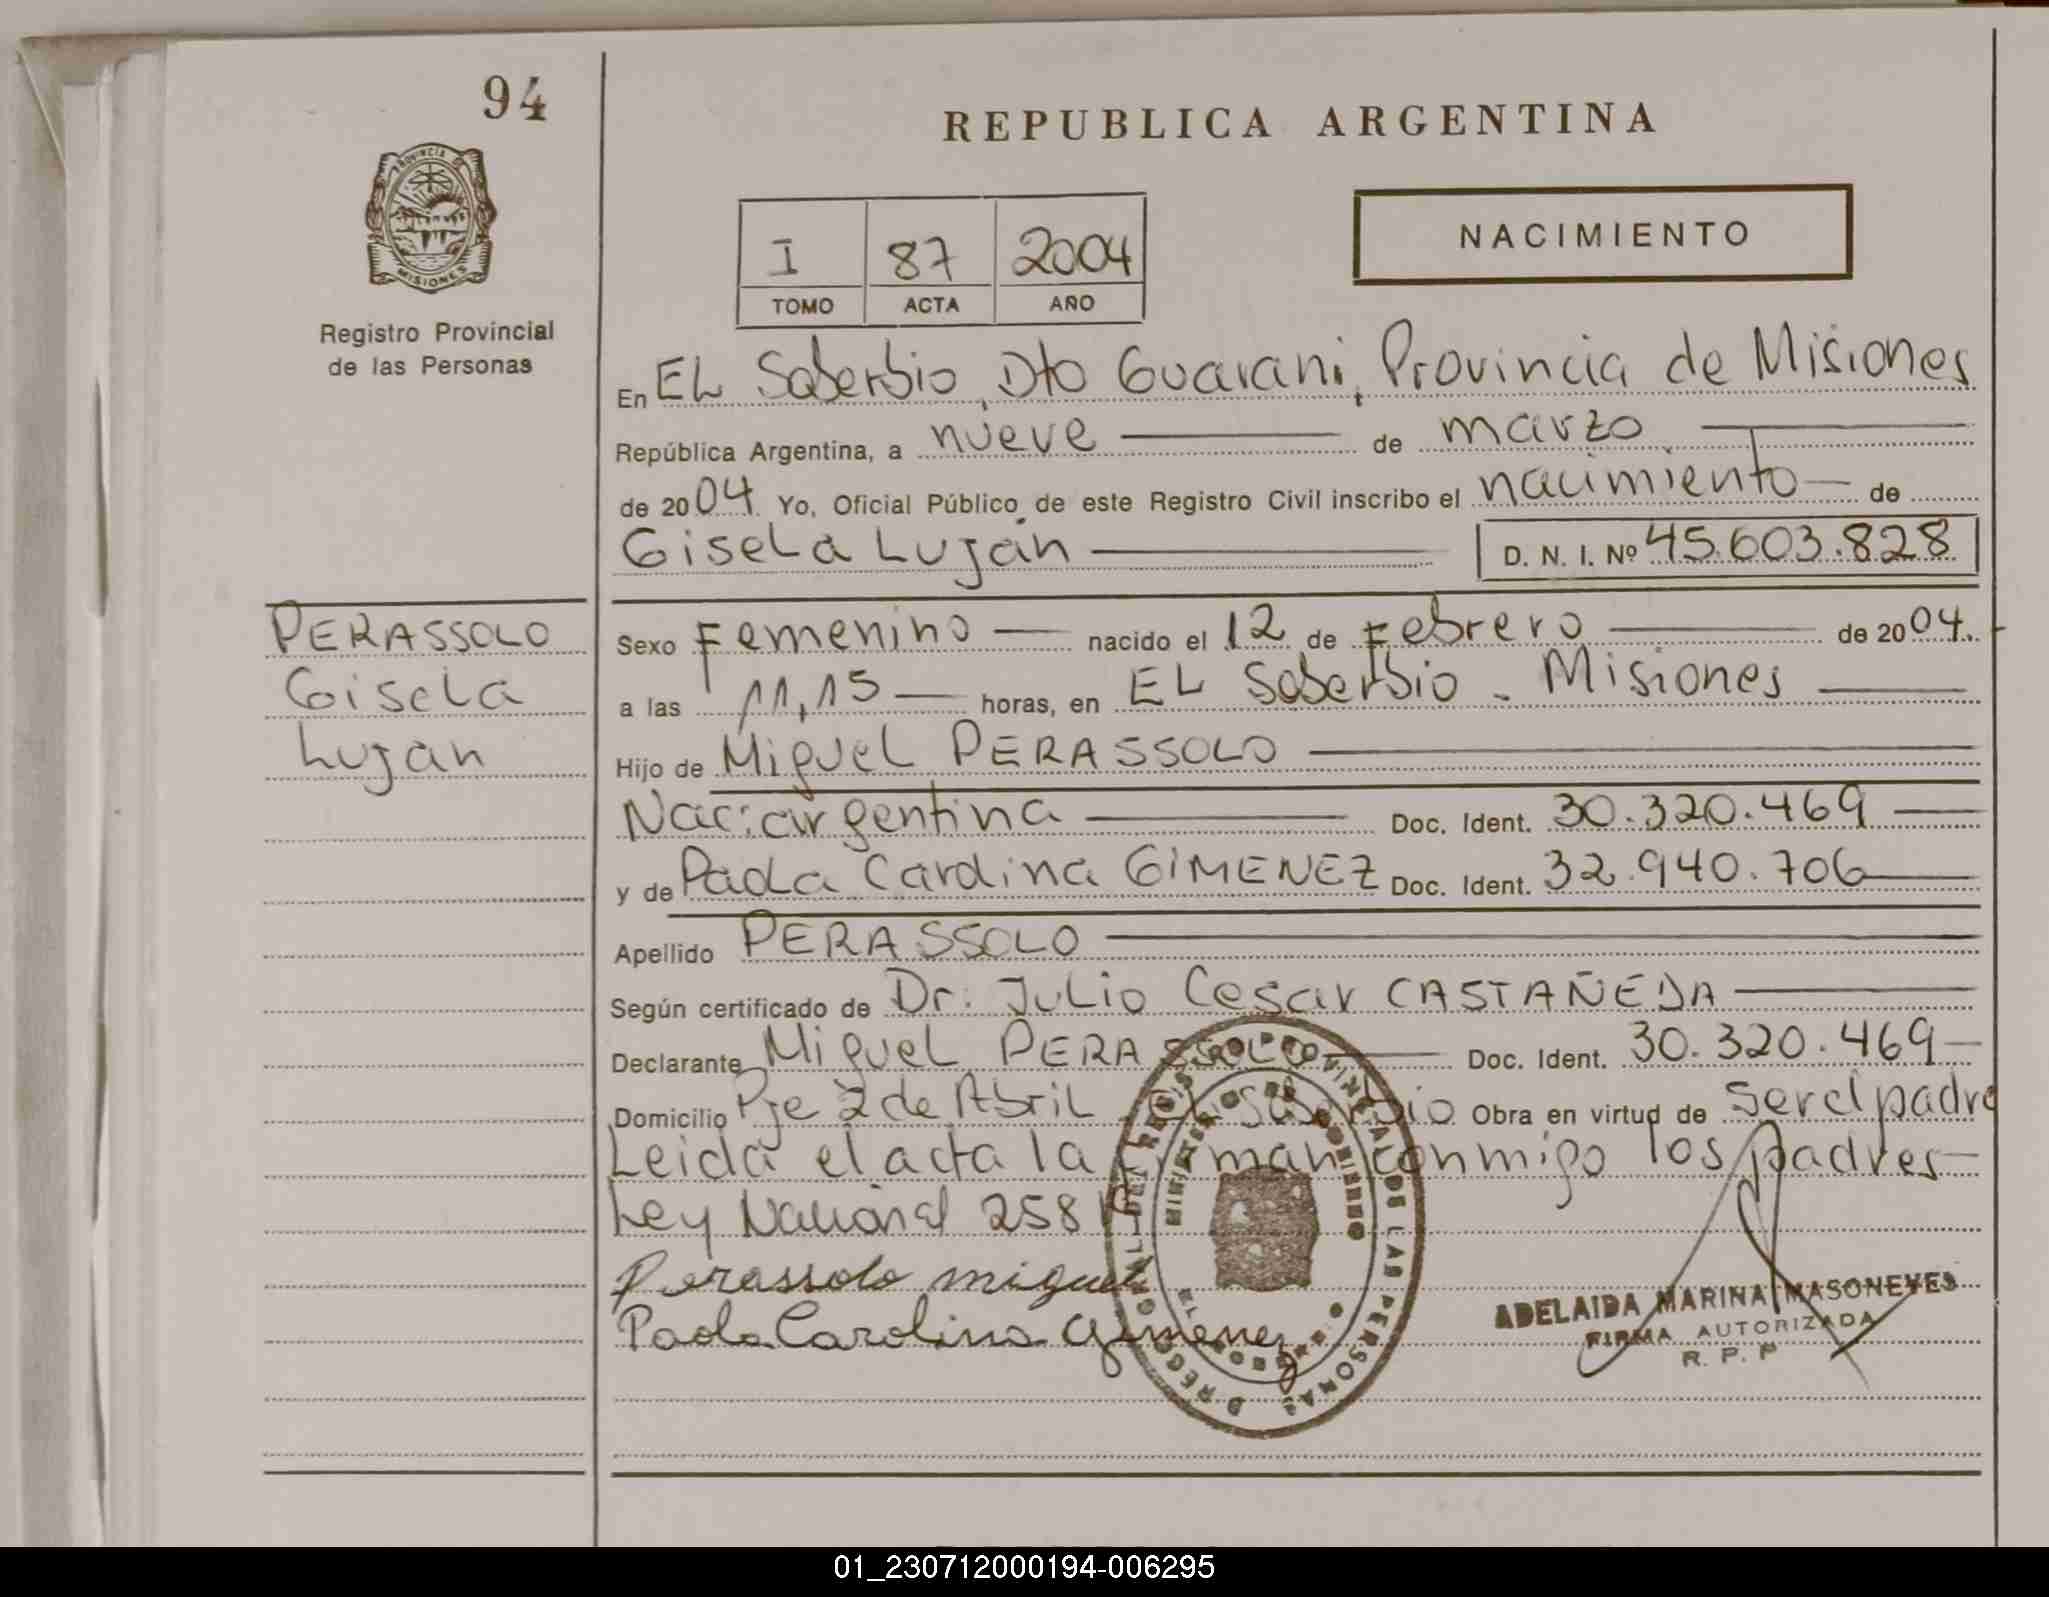 94
REPUBLICA ARGENTINA
PROVINCIA DE
MISIONES
Registro Provincial
de las Personas
I 87 2004
TOMO ACTA AÑO
NACIMIENTO
En EL Soberbio, Dto Guarani, Provincia de Misiones
República Argentina, a nueve de marzo
de 2004 Yo, Oficial Público de este Registro Civil inscribo el nacimiento de
Gisela Luján D. N. I. Nº 45.603.828
PERASSOLO
Gisela
Luján
Sexo Femenino nacido el 12 de Febrero de 2004.
a las 11,15 horas, en EL Soberbio - Misiones
Hijo de Miguel PERASSOLO
Nac: argentina Doc. Ident. 30.320.469
y de Paola Carolina GIMENEZ Doc. Ident. 32.940.706
Apellido PERASSOLO
Según certificado de Dr. Julio Cesar CASTAÑEDA
Declarante Miguel PERASSOLO Doc. Ident. 30.320.469
Domicilio Pje 2 de Abril El Soberbio Obra en virtud de ser el padre
Leida el acta la firman conmigo los padres
Ley Nacional 2581
Perassolo miguel
Paola Carolina Gimenez
REGISTRO PROVINCIAL DE LAS PERSONAS
MINISTERIO DE GOBIERNO
ADELAIDA MARINA MASONEVES
FIRMA AUTORIZADA
R. P. P
01_230712000194-006295